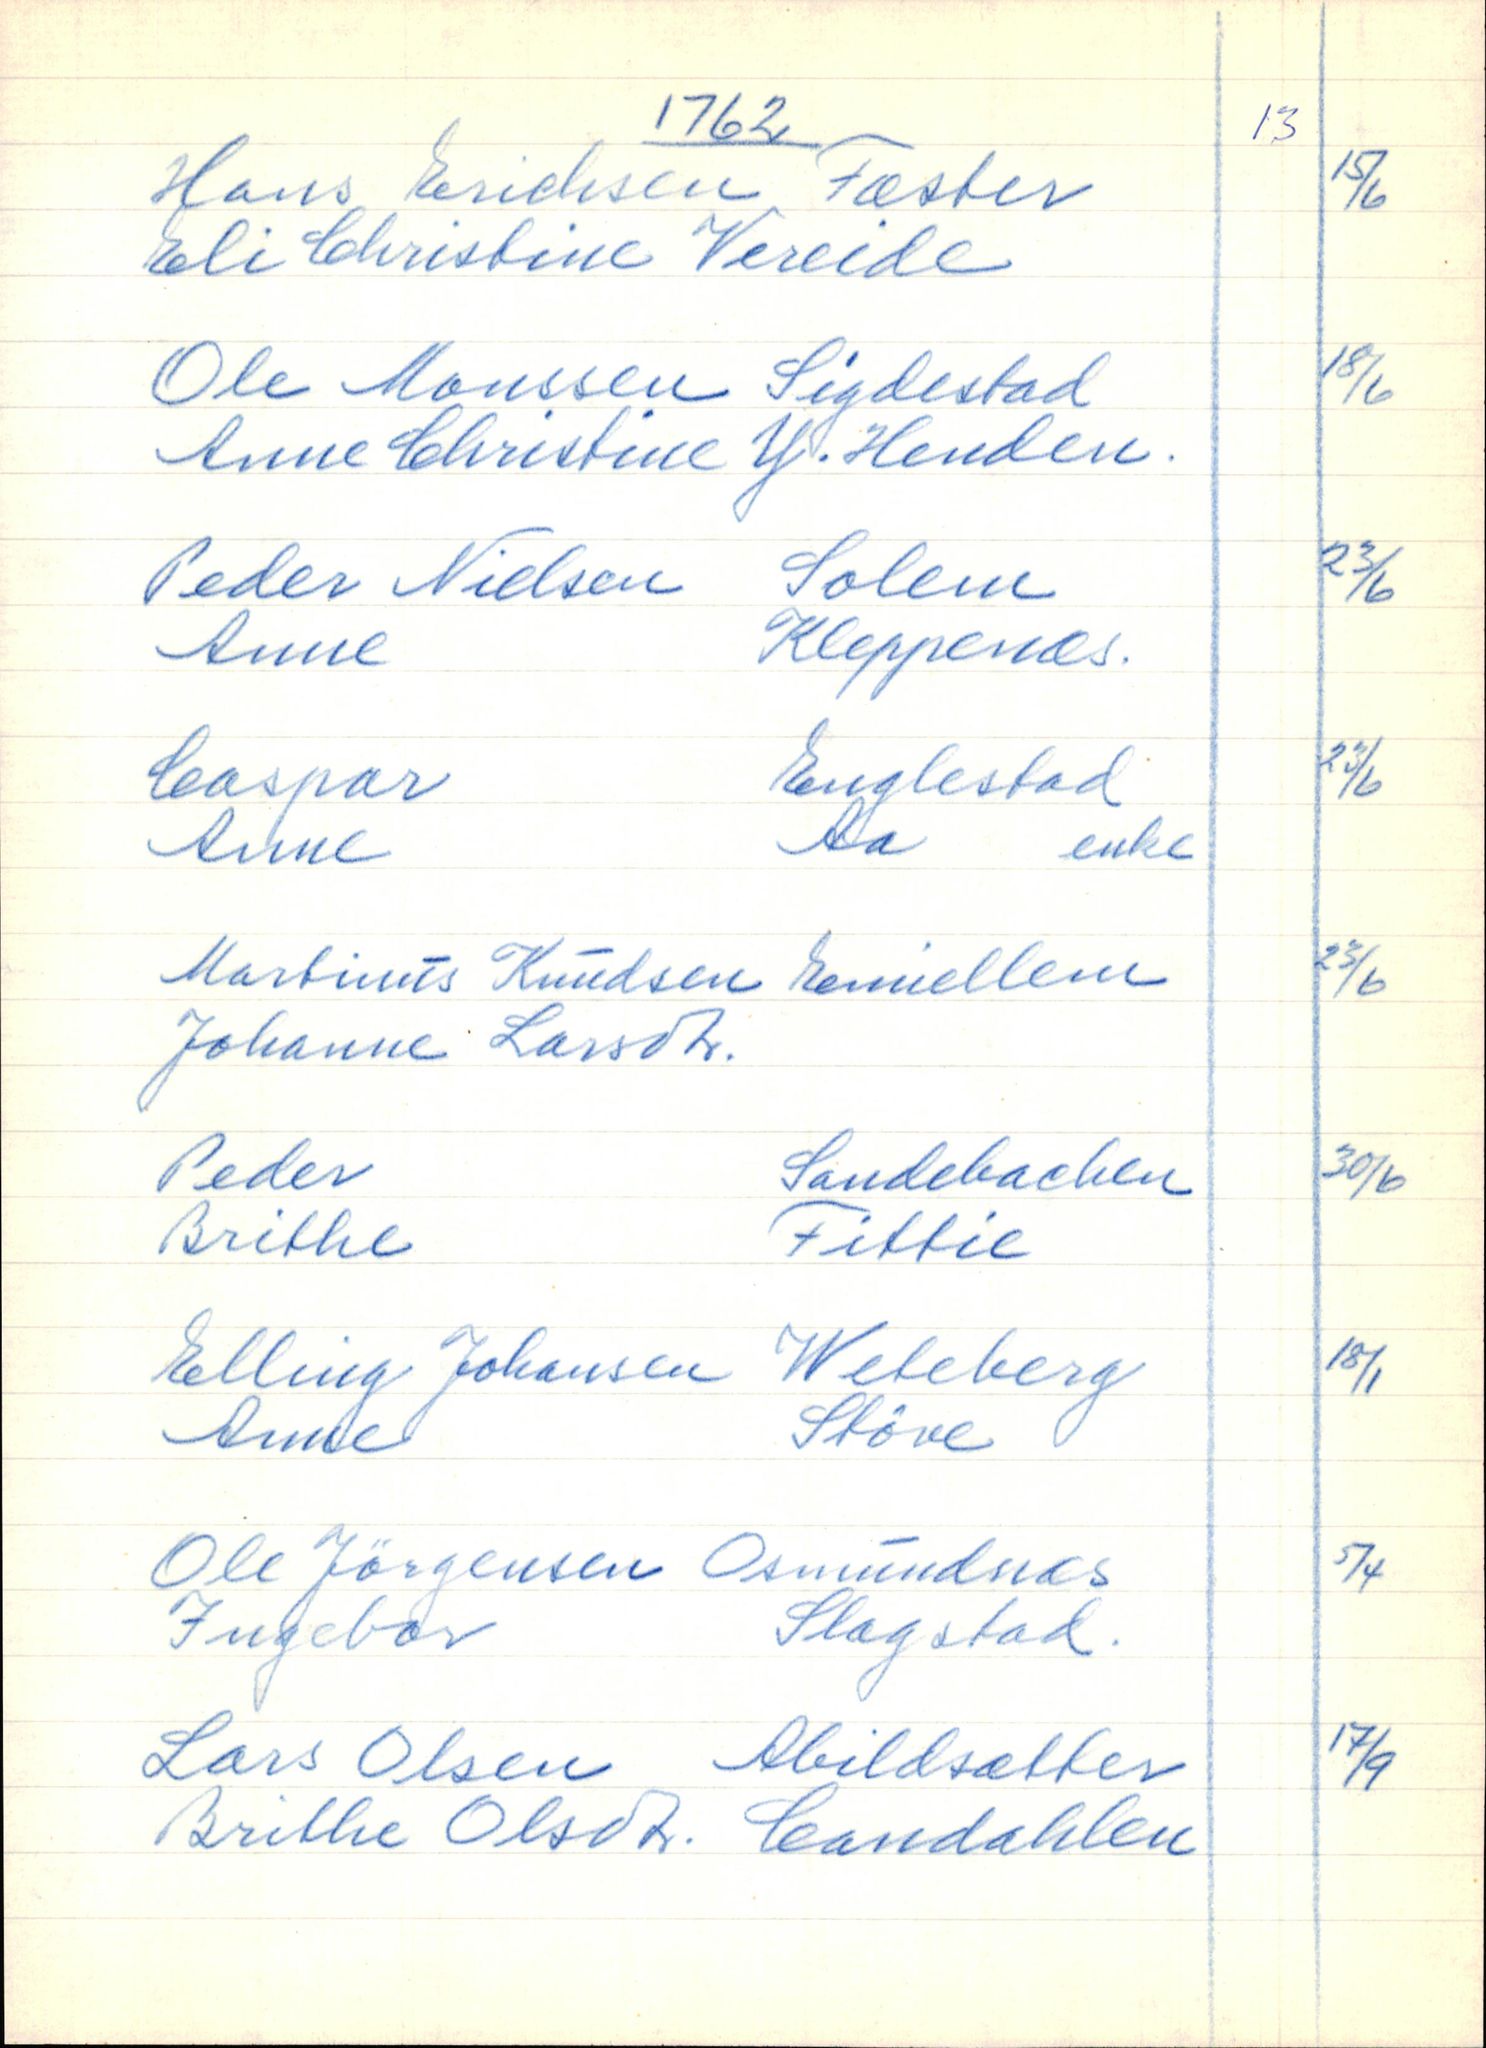 1762 13
Hans Erichsen Fæster 15/6
Eli Christine Vereide
Ole Monssen Sigdestad 18/6
Anne Christine Y. Henden.
Peder Nielsen Solem 23/6
Anne Kleppenæs.
Caspar Englestad 23/6
Anne Aa enke
Martinus Knudsen Emiellem 23/6
Johanne Larsdtr.
Peder Sandebachen 30/6
Brithe Fittie
Elling Johansen Weteberg 18/1
Anne Støve
Ole Jörgensen Osmundnæs 5/4
Ingebor Slagstad.
Lars Olsen Abildsætter 17/9
Brithe Olsdtr. Candahlen